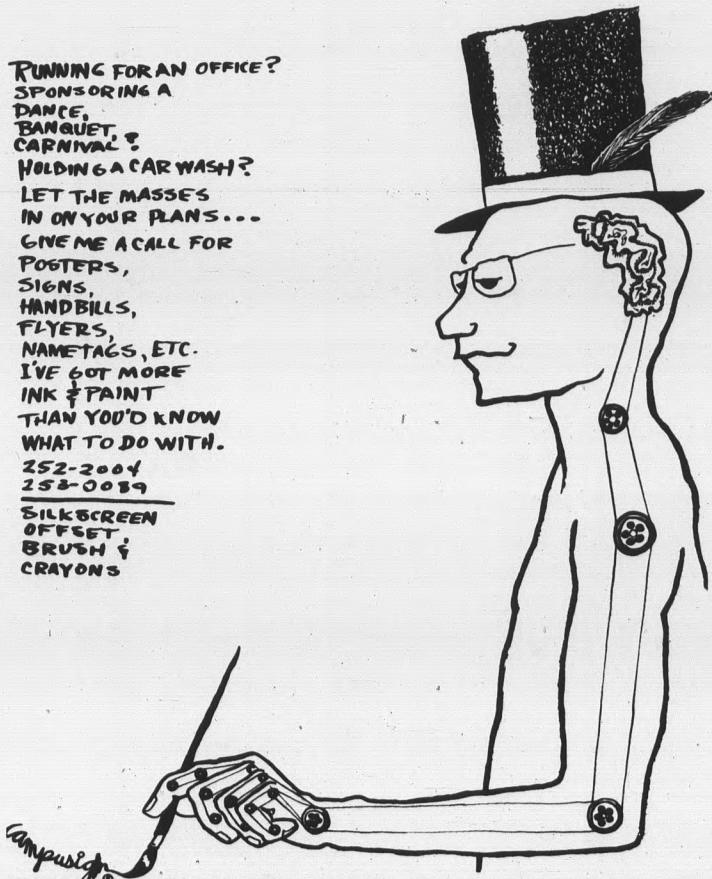 RUNNING FOR AN OFFICE?
SPONSORING A
DANCE,
BANQUET,
CARNIVAL?
HOLDING A CAR WASH?
LET THE MASSES
IN ON YOUR PLANS...
GIVE ME A CALL FOR
POSTERS,
SIGNS,
HANDBILLS,
FLYERS,
NAMETAGS, ETC.
I'VE GOT MORE
INK & PAINT
THAN YOU'D KNOW
WHAT TO DO WITH.
252-2004
253-0089
SILKSCREEN
OFFSET,
BRUSH &
CRAYONS
Campusign